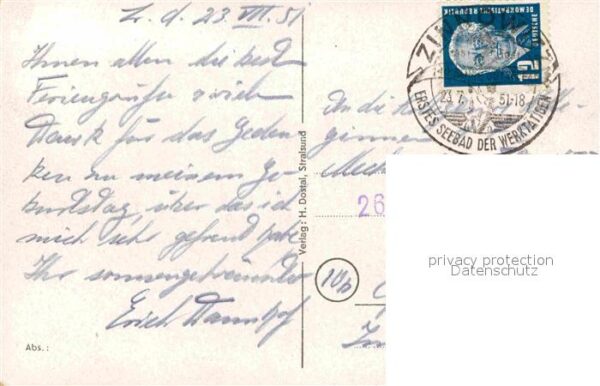 Z. d. 23. VII. 51
Ihnen allen die besten
Feriengrüße u. vielen
Dank für das Geden-
ken zu meinem Ge-
burtstag, über das ich
mich sehr gefreut habe
Ihr sonnengebräunter
Erich
Abs.:
Verlag: H. Dostal, Stralsund
DEUTSCHE
DEMOKRATISCHE REPUBLIK
12
23.7. 51-18
ERSTES SEEBAD DER WERKTÄTIGEN
An die
26
10b
privacy protection
Datenschutz